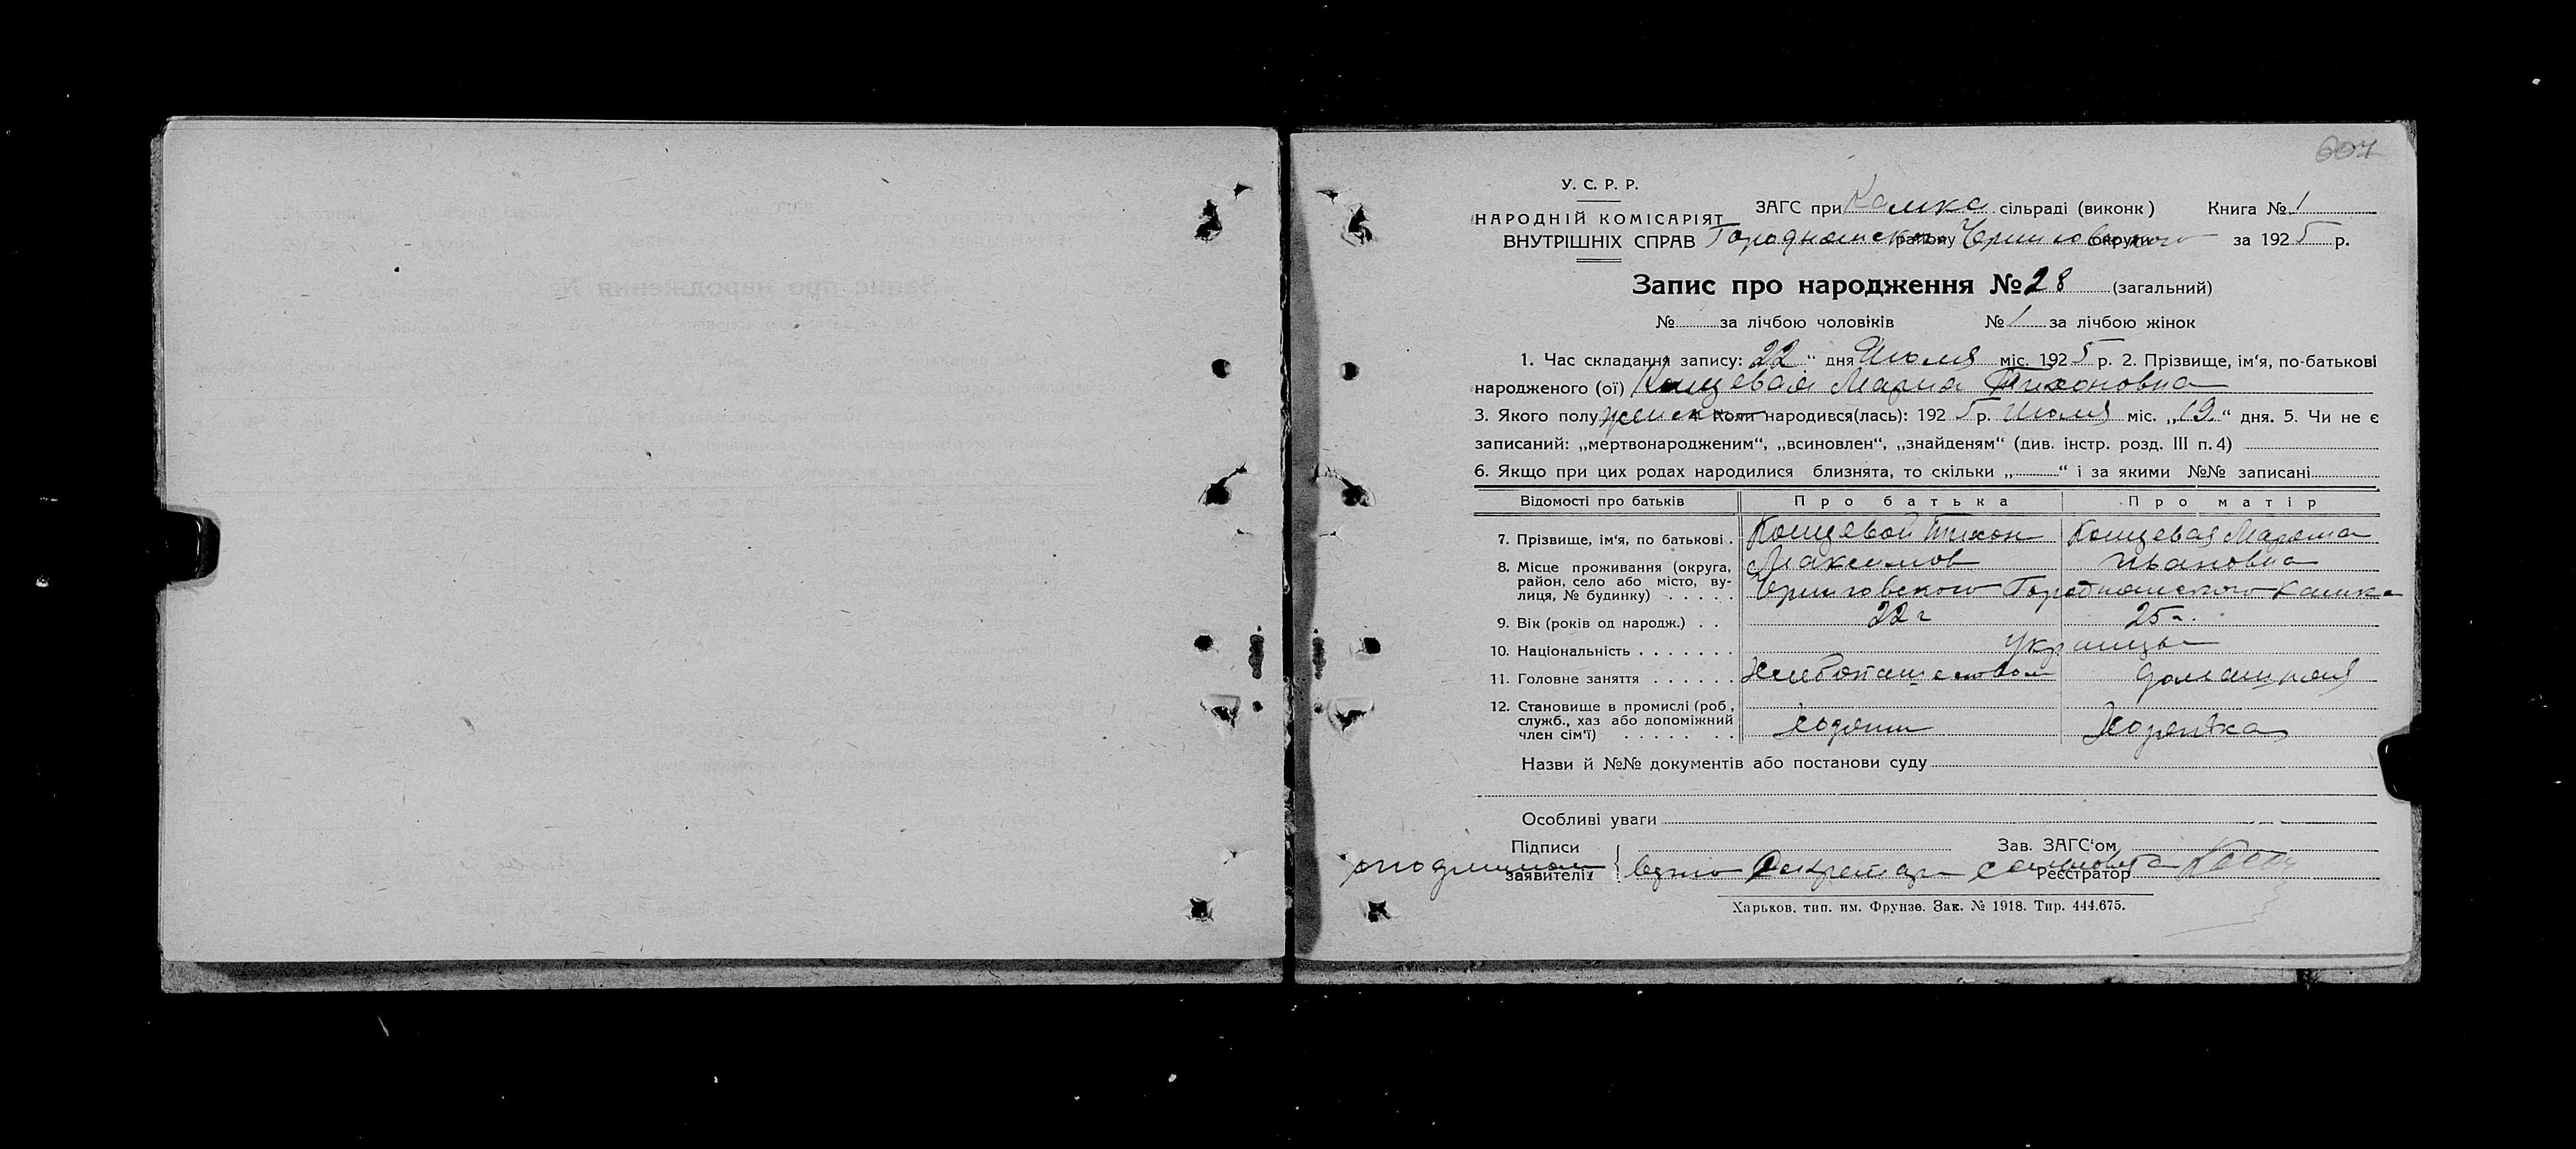 607
У. С. Р. Р.
НАРОДНІЙ КОМІСАРІЯТ
ВНУТРІШНІХ СПРАВ
ЗАГС при Камка сільраді (виконк) Книга № 1
Городнянского району Черниговского округи за 1925 р.
Запис про народження № 28 (загальний)
№ за лічбою чоловіків № 1 за лічбою жінок
1. Час складання запису: 22 “ дня Июля міс. 1925 р. 2. Прізвище, ім‘я, по-батькові
народженого (ої) Концевая Мария Тихоновна
3. Якого полу женск 4. Коли народився(лась): 1925 р. Июля міс. „19“ дня. 5. Чи не є
записаний: „мертвонародженим“, „всиновлен“, „знайденям“ (див. інстр. розд. III п. 4)
6. Якщо при цих родах народилися близнята, то скільки „ “ і за якими №№ записані
Відомості про батьків Про батька Про матір
7. Прізвище, ім‘я, по батькові . Концевой Тихон Концевая Марфа
Максимов Ивановна
8. Місце проживання (округа,
район, село або місто, ву-
лиця, № будинку) . . . . . Черниговского Городнянского Камка
9. Вік (років од народж.) . . 22 г 25 г.
10. Національність . . . . . . . Украинцы
11. Головне заняття . . . . . . Хлебопашеством домашняя
12. Становище в промислі (роб,
служб., хаз або допоміжний
член сім‘ї) . . . . . . . Хозяин Хозяйка
Назви й №№ документів або постанови суду
Особливі уваги
Підписи Зав. ЗАГС‘ом
заявителів Реєстратор
подлинном верно Секретарь сельсовета
Харьков, тип. им. Фрунзе. Зак. № 1918. Тир. 444.675.